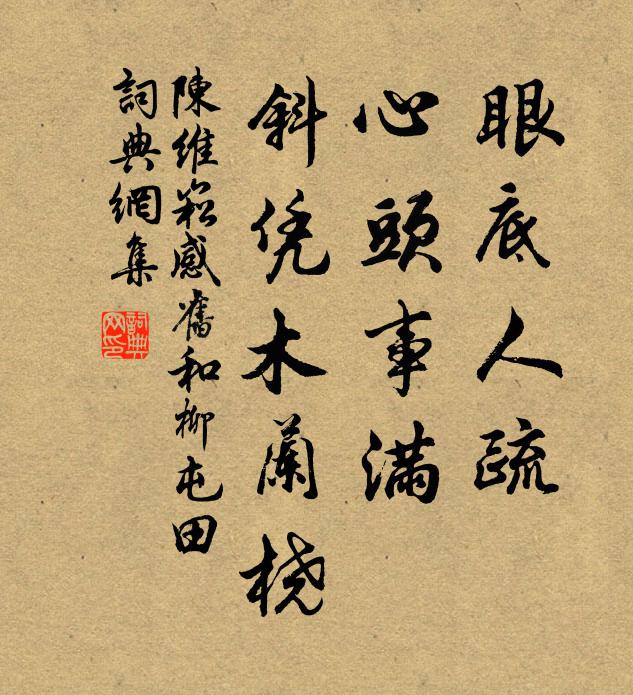 眼底人疏
心頭事滿
斜凭木蘭桡
陳維崧感舊和柳屯田
詞典網集
詞典
网印